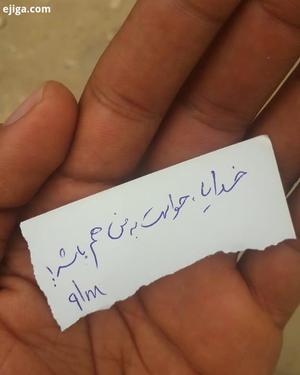 ejiga.com
خدایا، حواست به من هم باشد!